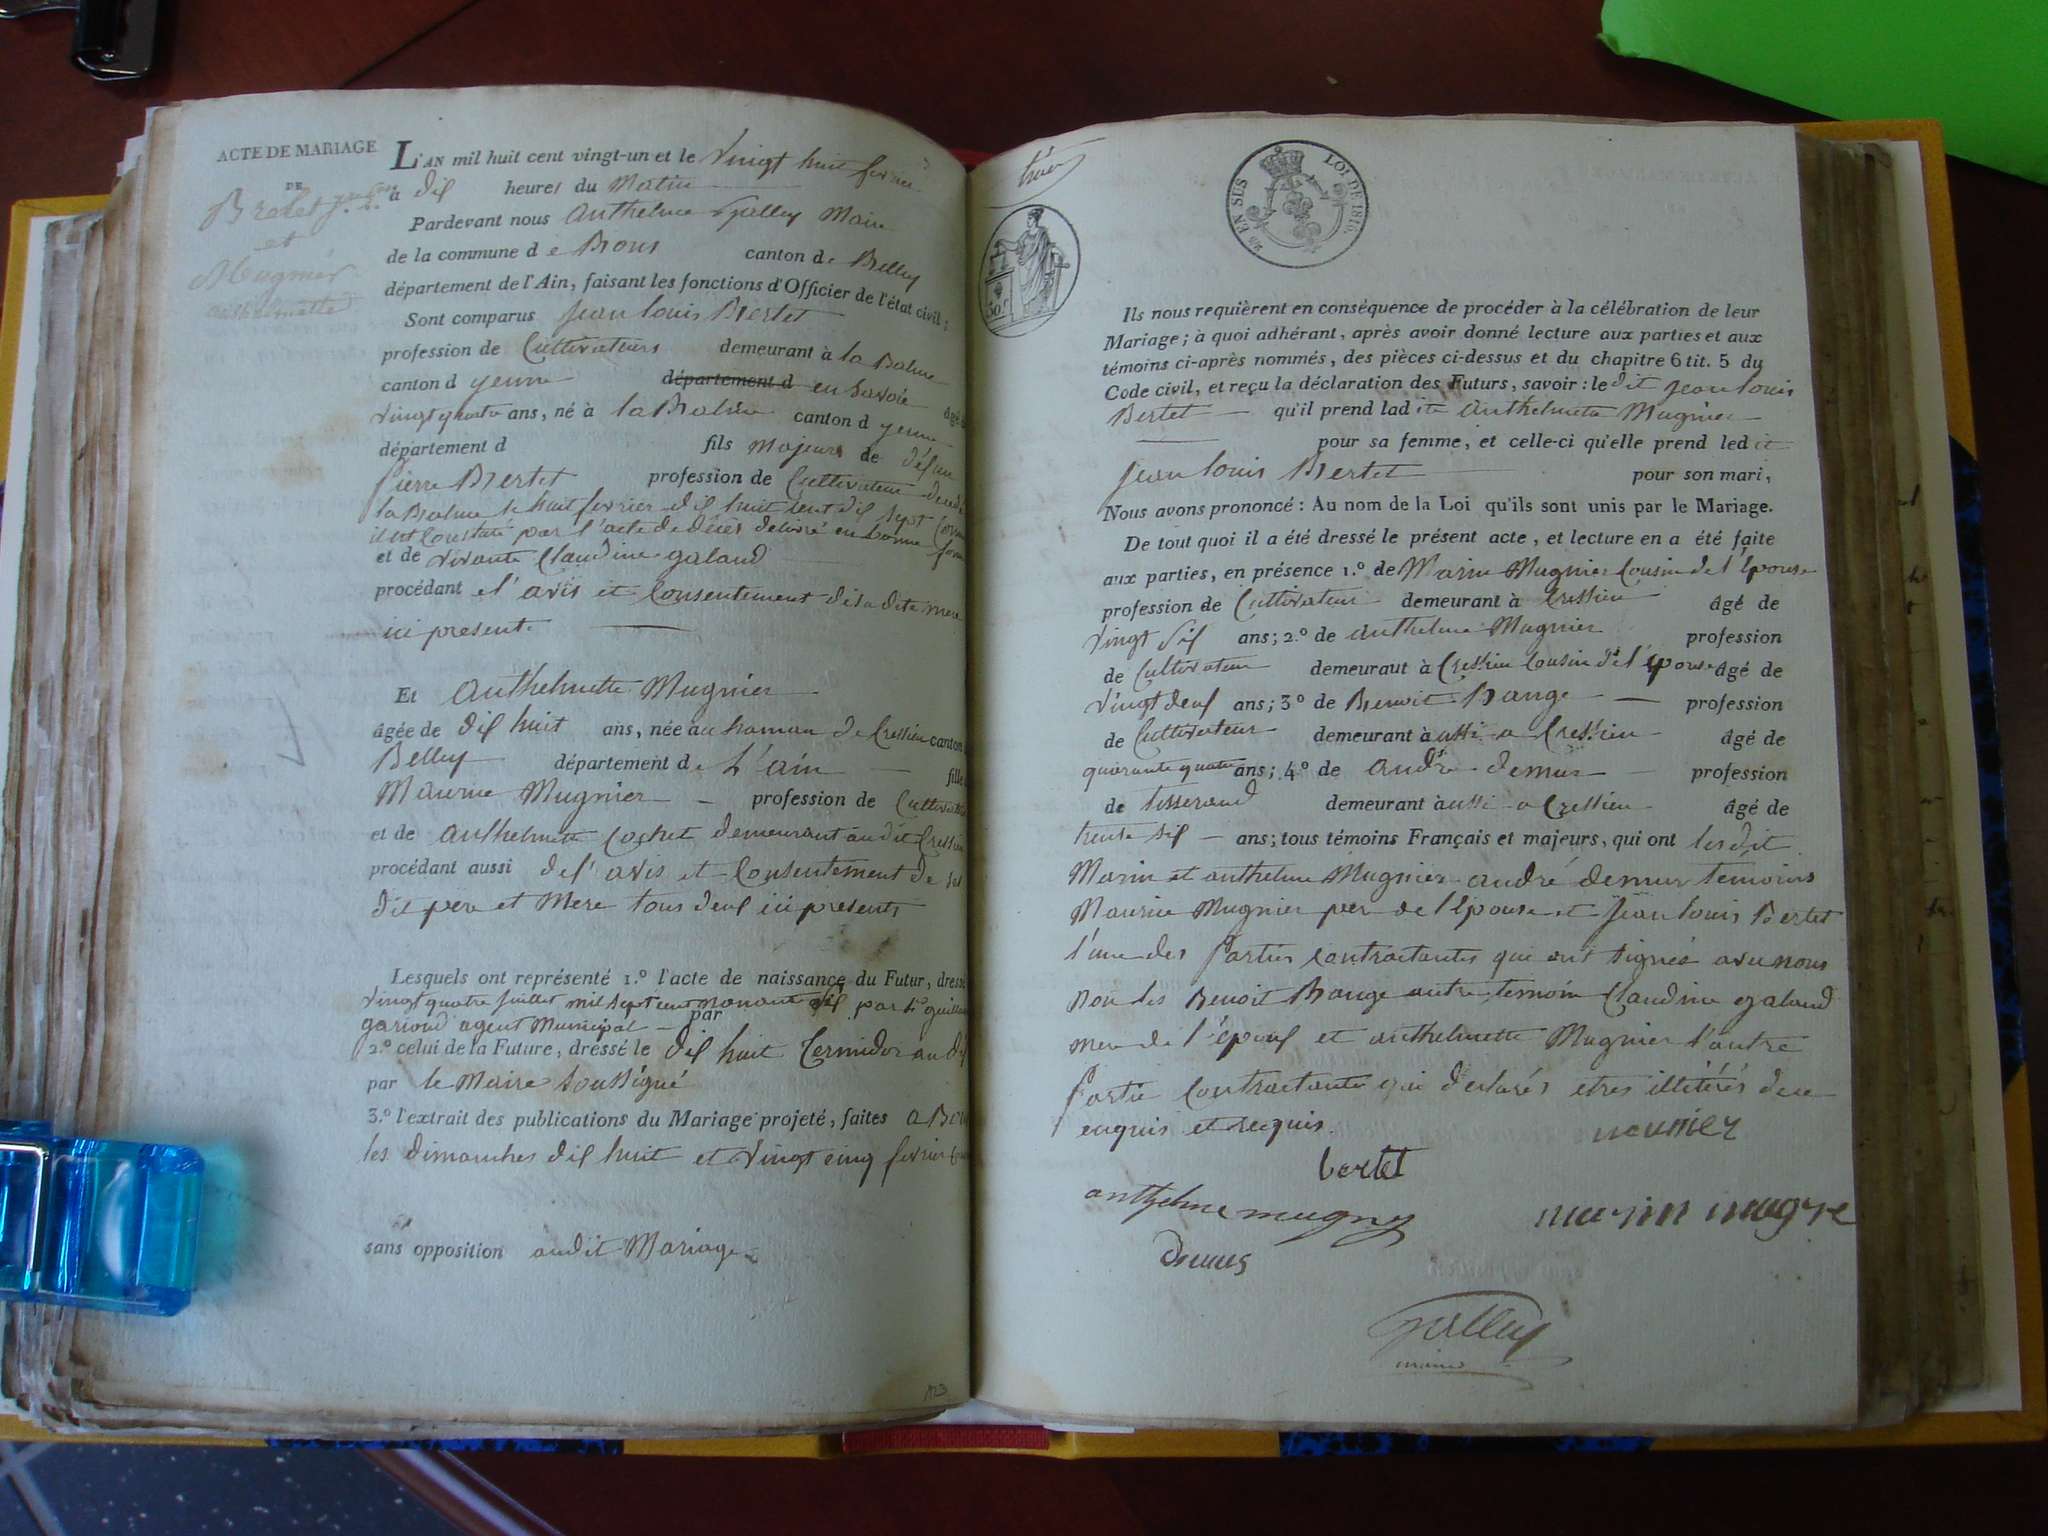 ACTE DE MARIAGE
DE
et
Mugnier
anthelmette
L'AN mil huit cent vingt-un et le vingt huit fevrier
à dix heures du Matin
Pardevant nous Anthelme Gallay Maire
de la commune d e Bons canton de Belley
département de l'Ain, faisant les fonctions d'Officier de l'état civil;
Sont comparus Jean louis Bertet
profession de Cultivateurs demeurant à la Balme
canton d yenne département d en Savoie âgé
vingt quatre ans, né à la Balme canton d yenne
département d fils Majeurs de défun
Pierre Bertet profession de Cultivateur decede
la Balme le huit fevrier dix huit cent dix sept Comme
il est Constaté par l'acte de Décès delivré en bonne forme
et de vivante Claudine galand
procédant et l'avis et Consentement de sa dite mere
ici presente
Et Anthelmette Mugnier
âgée de dix huit ans, née au hamau de Cressieu canton
Belley département de L'ain fille
Maurice Mugnier profession de Cultivateur
et de Anthelmette Cochet demeurant audit Cressieu
procédant aussi de l'avis et Consentement de ses
dit pere et Mere tous deux ici presents
Lesquels ont représenté 1.º l'acte de naissance du Futur, dressé
vingt quatre juillet mil sept cent nonante six par
agent Municipal par
2.º celui de la Future, dressé le dix huit Termidor an dix
par le Maire Soussigné
3.º l'extrait des publications du Mariage projeté, faites a Bons
les dimanches dix huit et vingt cinq fevrier
sans opposition audit Mariage
20 EN SUS LOI DE 1816.
50c
Ils nous requièrent en conséquence de procéder à la célébration de leur
Mariage; à quoi adhérant, après avoir donné lecture aux parties et aux
témoins ci-après nommés, des pièces ci-dessus et du chapitre 6 tit. 5 du
Code civil, et reçu la déclaration des Futurs, savoir: le dit Jean louis
Bertet qu'il prend lad ite Anthelmette Mugnier
pour sa femme, et celle-ci qu'elle prend led it
Jean louis Bertet pour son mari,
Nous avons prononcé: Au nom de la Loi qu'ils sont unis par le Mariage.
De tout quoi il a été dressé le présent acte, et lecture en a été faite
aux parties, en présence 1.º de Marin Mugnier Cousin de l'Epouse
profession de Cultivateur demeurant à Cressieu âgé de
vingt six ans; 2.º de Anthelme Mugnier profession
de Cultivateur demeuraut à Cressieu Cousin de l'épouse âgé de
vingt deux ans; 3º de Benoit Bange profession
de Cultivateur demeurant à ussi a Cressieu âgé de
quarante quatre ans; 4.º de André demur profession
de tisserand demeurant à ussi a Cressieu âgé de
trente six ans; tous témoins Français et majeurs, qui ont lesdit
Marin et anthelme Mugnier andré demur temoins
Maurice Mugnier per de l'Epouse et Jean louis Bertet
l'une des Parties contractantes qui ont signés avec nous
non les Benoit Bange autre temoin Claudine galand
mere de l'époux et anthelmette Mugnier l'autre
Partie Contractante qui declarés etres illitérés de ce
enquis et requis.
bertet
anthelme mugny
marin
mairie